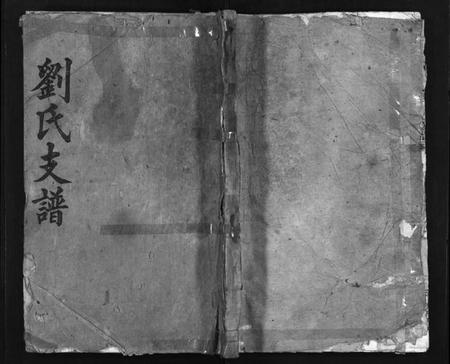 劉氏支譜